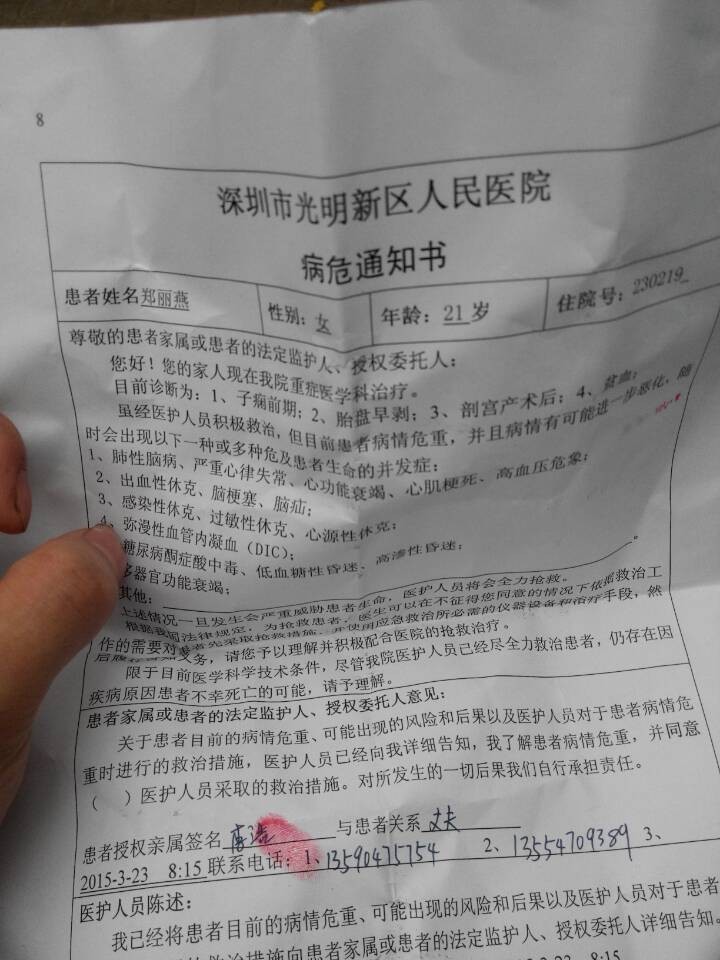 8
深圳市光明新区人民医院
病危通知书
患者姓名郑丽燕 性别: 女 年龄: 21 岁 住院号: 230219
尊敬的患者家属或患者的法定监护人、授权委托人:
您好!您的家人现在我院重症医学科治疗。
目前诊断为: 1、子痫前期; 2、胎盘早剥; 3、剖宫产术后; 4、贫血;
虽经医护人员积极救治, 但目前患者病情危重, 并且病情有可能进一步恶化, 随
时会出现以下一种或多种危及患者生命的并发症:
1、肺性脑病、严重心律失常、心功能衰竭、心肌梗死、高血压危象;
2、出血性休克、脑梗塞、脑疝;
3、感染性休克、过敏性休克、心源性休克;
4、弥漫性血管内凝血(DIC);
糖尿病酮症酸中毒、低血糖性昏迷、高渗性昏迷;
器官功能衰竭;
其他: 。
上述情况一旦发生会严重威胁患者生命, 医护人员将会全力抢救。
根据我国法律规定, 为抢救患者, 医生可以在不征得您同意的情况下依据救治工
作的需要对患者先采取抢救措施, 并使用应急救治所必需的仪器设备和治疗手段, 然
后履行告知义务, 请您予以理解并积极配合医院的抢救治疗。
限于目前医学科学技术条件, 尽管我院医护人员已经尽全力救治患者, 仍存在因
疾病原因患者不幸死亡的可能, 请予理解。
患者家属或患者的法定监护人、授权委托人意见:
关于患者目前的病情危重、可能出现的风险和后果以及医护人员对于患者病情危
重时进行的救治措施, 医护人员已经向我详细告知, 我了解患者病情危重, 并同意
( )医护人员采取的救治措施。对所发生的一切后果我们自行承担责任。
患者授权亲属签名 与患者关系 丈夫
2015-3-23 8:15 联系电话: 1、13590475754 2、13554709389 3、
医护人员陈述:
我已经将患者目前的病情危重、可能出现的风险和后果以及医护人员对于患者
救治措施向患者家属或患者的法定监护人、授权委托人详细告知。
8:15